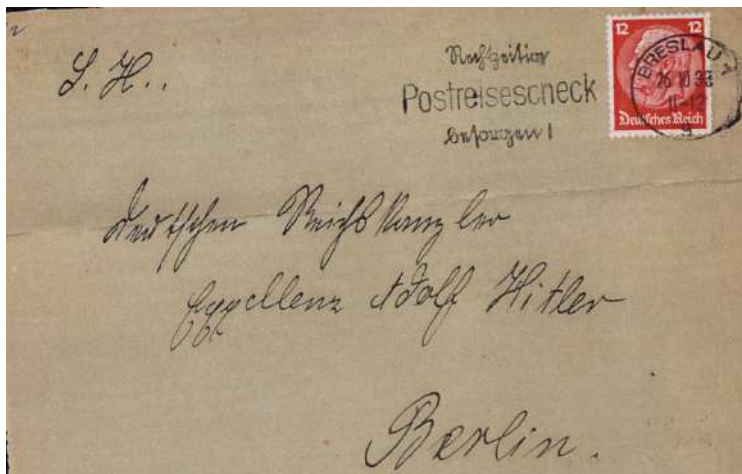 S. H..
Rechtzeitig
Postreisescheck
besorgen!
12 12
Deutsches Reich
BRESLAU 1
26.10.33
11-12
g
Deutschen Reichskanzler
Exzellenz Adolf Hitler
Berlin.